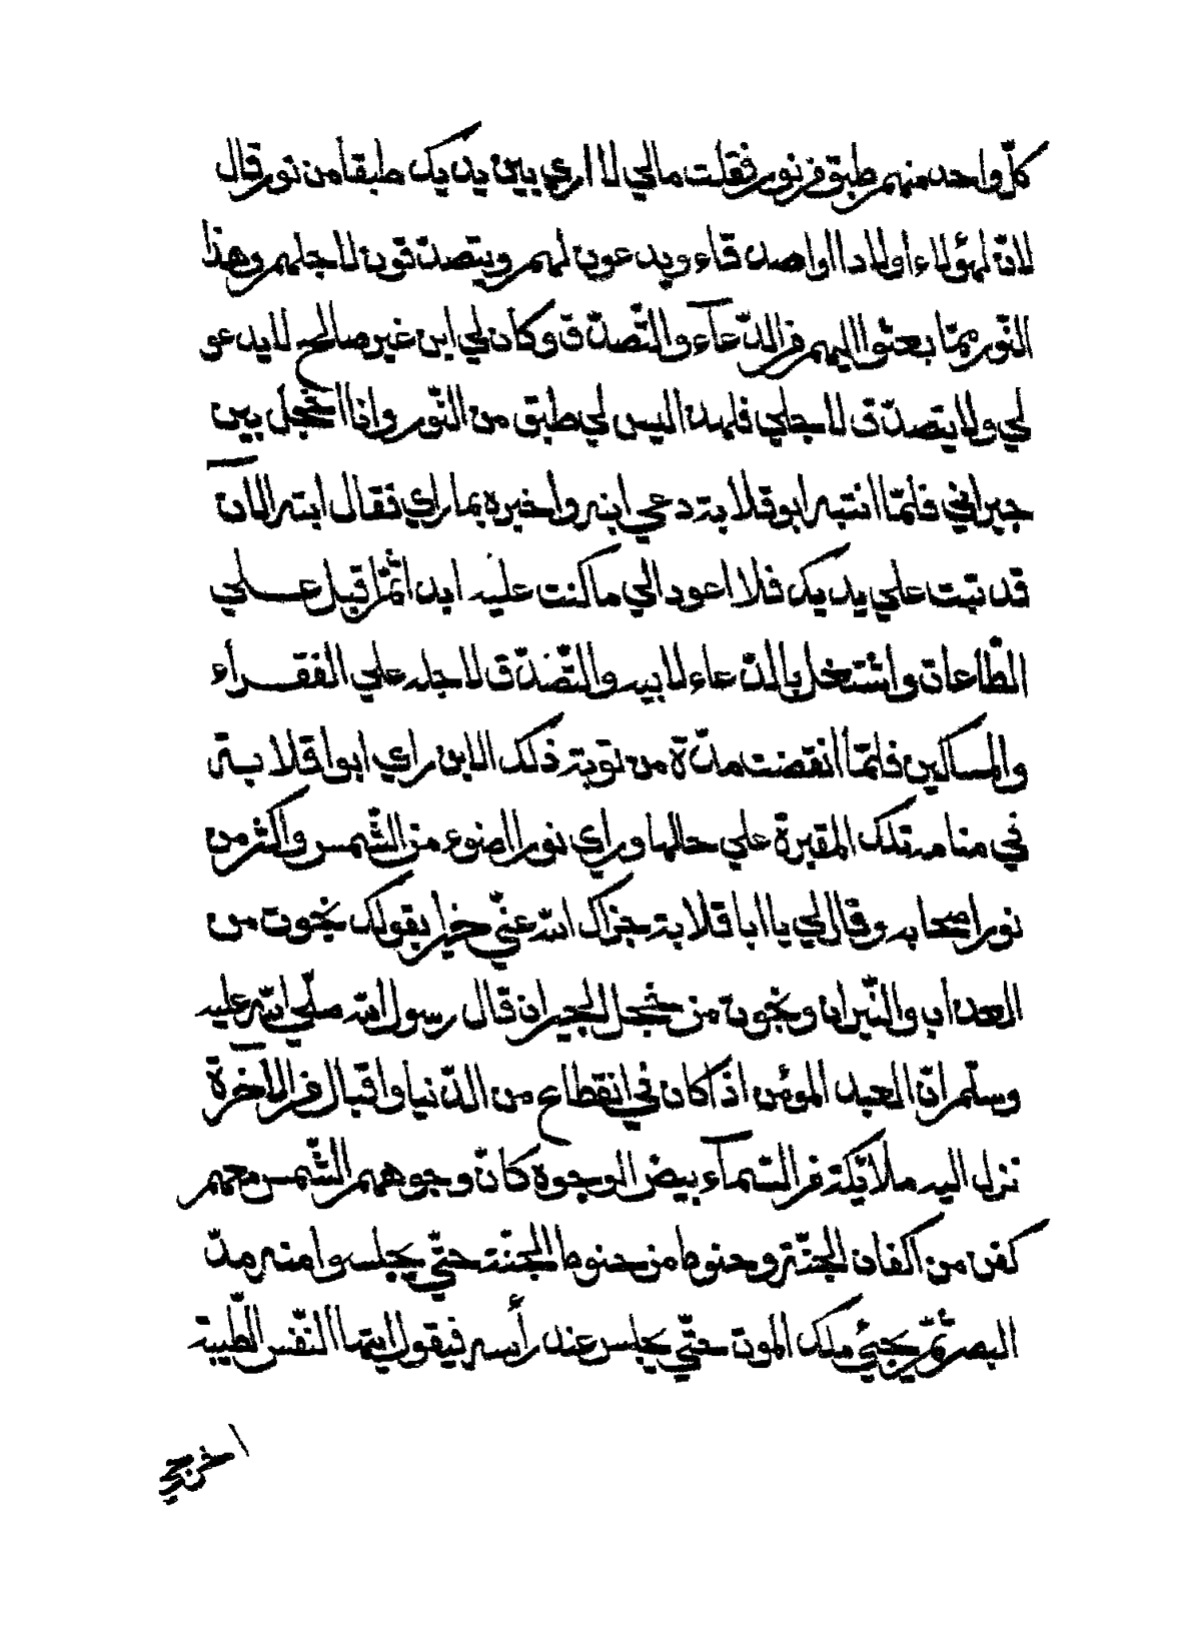 كلّ واحد منهم طبق من نور فقلت مالي لا اري بين يديك طبقا من نور قال
لانّ لهؤلاء اولادا او اصدقاء ويدعون لهم ويتصدّقون لاجلهم وهذا
النّور ممّا بعثوا اليهم من الدّعآء والتّصدّق وكان لي ابن غير صالح لا يدعو
لي ولا يتصدّق لاجلي فلهذا ليس لي طبق من النّور وانا اخجل بين
جيراني فلمّا انتبه ابو قلابة دعي ابنه واخبره بما راي فقال ابنه الآن
قد تبت علي يديك فلا اعود الي ما كنت عليه ابدا ثمّ اقبل علي
الطّاعات واشتغل بالدّعاء لابيه والتّصدّق لاجله علي الفقرأء
والمساكين فلمّا انقضت مدّة من توبة ذلك الابن راي ابوا قلابة
في منامه تلك المقبرة علي حالها وراي نورا اضوء من الشّمس واكثر من
نور اصحابه وقال لي يا ابا قلابة جزاك الله عنّي خيرا بقولك نجوت من
العذاب والنّيران ونجوت من خجل الجيران قال رسول الله صلّي الله عليه
وسلّم انّ العبد المؤمن اذا كان في انقطاع من الدّنيا واقبال من الآخرة
نزل اليه ملائكة من السّمآء بيض الوجوه كانّ وجوههم الشّمس معهم
كفن من اكفان الجنّة وحنوط من حنوط الجنّة حتّي يجلسوا منه مدّ
البصر ثمّ يجيئ ملك الموت حتّي يجلس عند رأسه فيقول ايتها النّفس الطّيبة
اخرجي